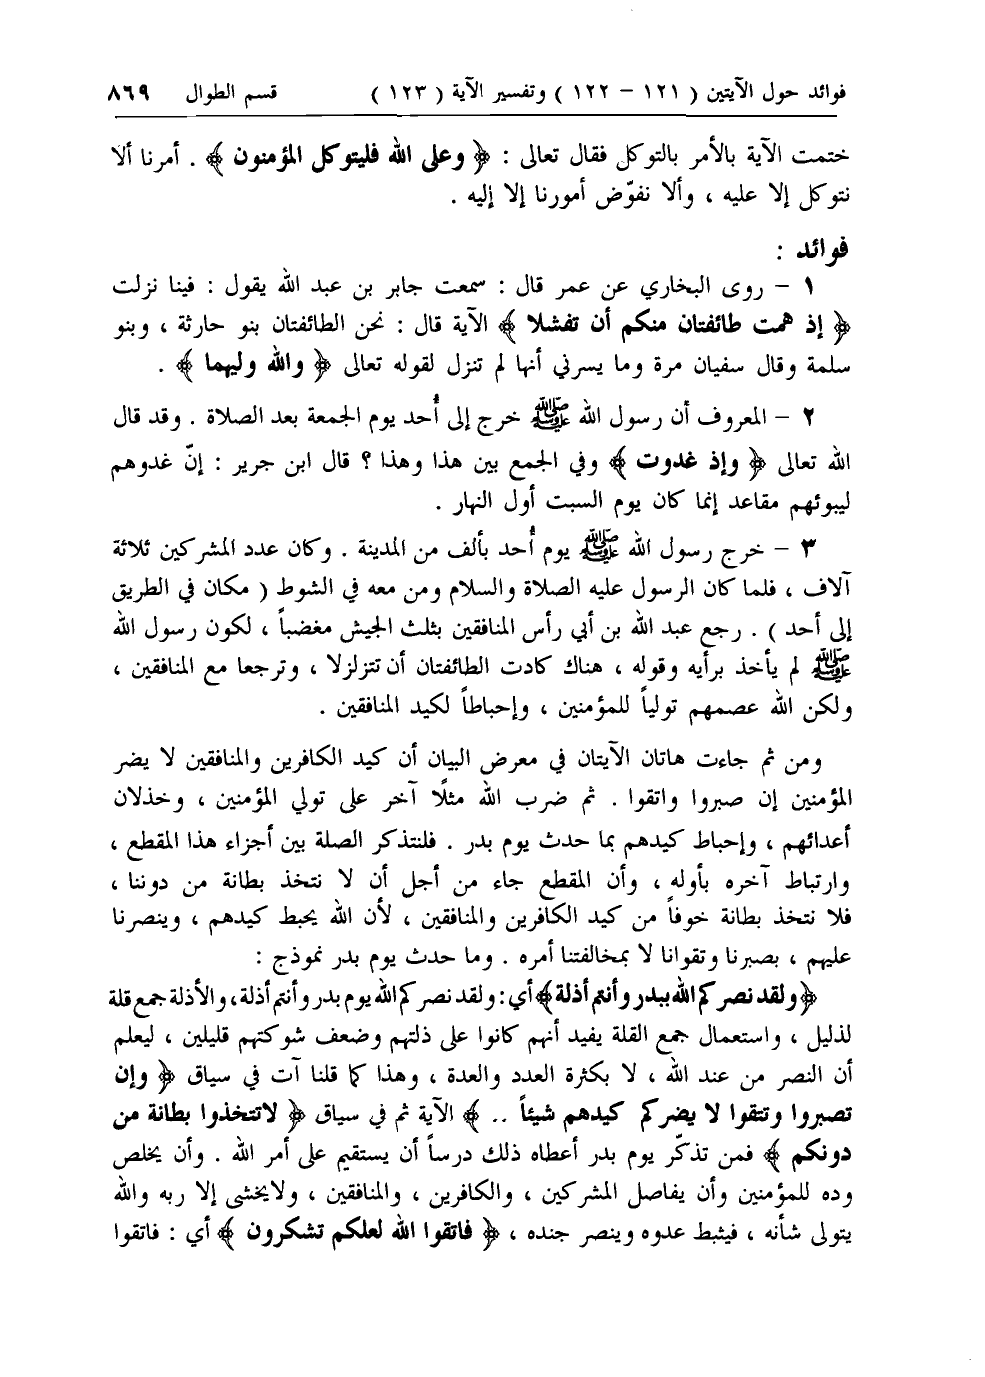 فوائد حول الآيتين ( ١٢١ – ١٢٢ ) وتفسير الآية ( ١٢٣ ) قسم الطوال ٨٦٩
ختمت الآية بالأمر بالتوكل فقال تعالى : ﴿ وعلى الله فليتوكل المؤمنون ﴾ . أمرنا ألا
نتوكل إلا عليه ، وألا نفوّض أمورنا إلا إليه .
فوائد :
١ – روى البخاري عن عمر قال : سمعت جابر بن عبد الله يقول : فينا نزلت
﴿ إذ همت طائفتان منكم أن تفشلا ﴾ الآية قال : نحن الطائفتان بنو حارثة ، وبنو
سلمة وقال سفيان مرة وما يسرني أنها لم تنزل لقوله تعالى ﴿ والله وليهما ﴾ .
٢ – المعروف أن رسول الله ﷺ خرج إلى أُحد يوم الجمعة بعد الصلاة . وقد قال
الله تعالى ﴿ وإذ غدوت ﴾ وفي الجمع بين هذا وهذا ؟ قال ابن جرير : إنّ غدوهم
ليبوئهم مقاعد إنما كان يوم السبت أول النهار .
٣ – خرج رسول الله ﷺ يوم أُحد بألف من المدينة . وكان عدد المشركين ثلاثة
آلاف ، فلما كان الرسول عليه الصلاة والسلام ومن معه في الشوط ( مكان في الطريق
إلى أحد ) . رجع عبد الله بن أبي رأس المنافقين بثلث الجيش مغضباً ، لكون رسول الله
ﷺ لم يأخذ برأيه وقوله ، هناك كادت الطائفتان أن تتزلزلا ، وترجعا مع المنافقين ،
ولكن الله عصمهم تولياً للمؤمنين ، وإحباطاً لكيد المنافقين .
ومن ثم جاءت هاتان الآيتان في معرض البيان أن كيد الكافرين والمنافقين لا يضر
المؤمنين إن صبروا واتقوا . ثم ضرب الله مثلًا آخر على تولي المؤمنين ، وخذلان
أعدائهم ، وإحباط كيدهم بما حدث يوم بدر . فلنتذكر الصلة بين أجزاء هذا المقطع ،
وارتباط آخره بأوله ، وأن المقطع جاء من أجل أن لا نتخذ بطانة من دوننا ،
فلا نتخذ بطانة خوفاً من كيد الكافرين والمنافقين ، لأن الله يحبط كيدهم ، وينصرنا
عليهم ، بصبرنا وتقوانا لا بمخالفتنا أمره . وما حدث يوم بدر نموذج :
﴿ولقد نصركم الله ببدر وأنتم أذلة﴾ أي : ولقد نصركم الله يوم بدر وأنتم أذلة، والأذلة جمع قلة
لذليل ، واستعمال جمع القلة يفيد أنهم كانوا على ذلتهم وضعف شوكتهم قليلين ، ليعلم
أن النصر من عند الله ، لا بكثرة العدد والعدة ، وهذا كما قلنا آت في سياق ﴿ وإن
تصبروا وتتقوا لا يضركم كيدهم شيئاً .. ﴾ الآية ثم في سياق ﴿ لاتتخذوا بطانة من
دونكم ﴾ فمن تذكّر يوم بدر أعطاه ذلك درساً أن يستقيم على أمر الله . وأن يخلص
وده للمؤمنين وأن يفاصل المشركين ، والكافرين ، والمنافقين ، ولايخشى إلا ربه والله
يتولى شأنه ، فيثبط عدوه وينصر جنده ، ﴿ فاتقوا الله لعلكم تشكرون ﴾ أي : فاتقوا